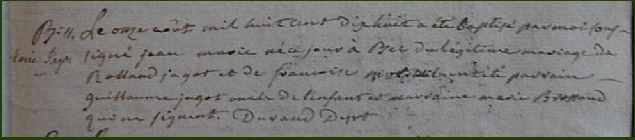 Bill. Le onze août mil huit cent dix huit a été baptisé par moi sous-
signé jean marie né ce jour à du légitime mariage de
Rolland jagot et de francoise a été parrain
guillaume jagot oncle de l'enfant et marraine marie
qui ne signent. Durand Desrt